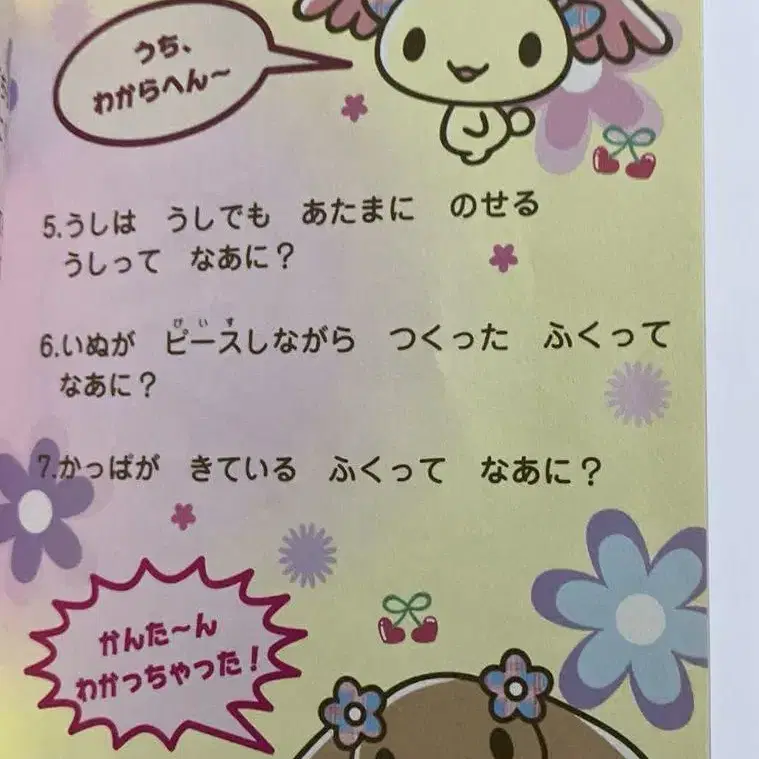 うち、
わからへん～
5.うしは　うしでも　あたまに　のせる
うしって　なあに？
ぴいす
6.いぬが　ピースしながら　つくった　ふくって
なあに？
7.かっぱが　きている　ふくって　なあに？
かんた～ん
わかっちゃった！